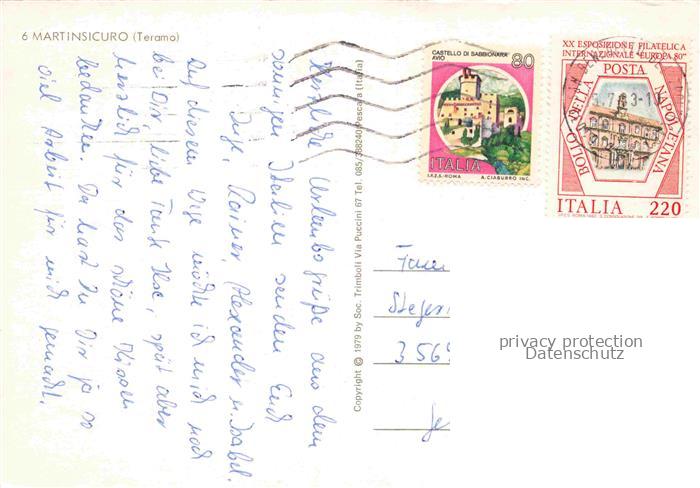 6 MARTINSICURO (Teramo)
Herzliche Urlaubsgrüße aus dem
sonnigen Italien senden Euch
Inge, Rainer, Alexander u. Isabel.
Auf diesem Wege möchte ich mich noch
bei Dir, liebe Tante Ilse, spät aber
herzlich für das schöne Kissen
bedanken. Du hast Dir ja so
viel Arbeit für mich gemacht.
Copyright © 1979 by Soc. Trimboli Via Puccini 67 Tel. 085/388240 Pescara (Italia)
CASTELLO DI SABBIONARA
AVIO
80
ITALIA
I.P.Z.S.-ROMA A. CIABURRO INC.
XX ESPOSIZIONE FILATELICA
INTERNAZIONALE "EUROPA 80"
BOLLO DELLA POSTA NAPOLETANA
ITALIA 220
Fam
356
privacy protection
Datenschutz